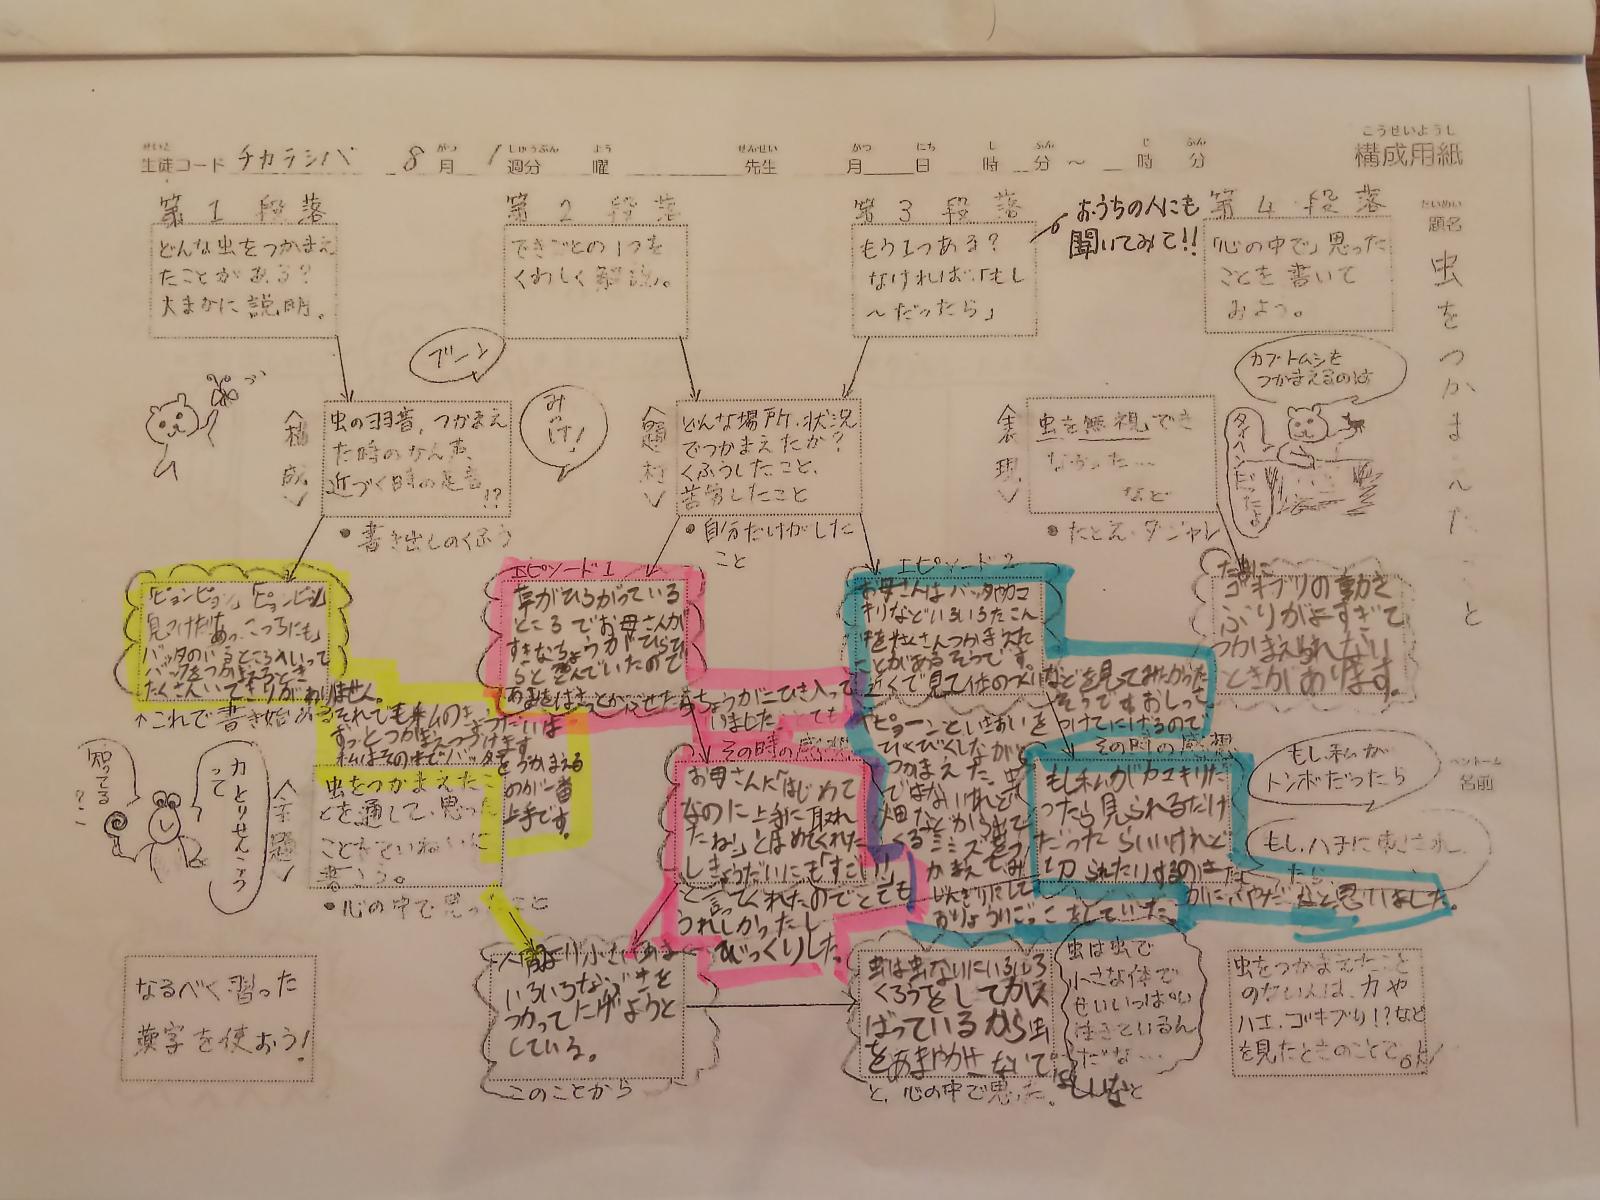 構成用紙
こうせいようし
生徒コード チカラシバ 8月 1週分 曜 先生 月 日 時 分 ～ 時 分
題名
虫をつかまえたこと
名前
ペンネーム
第1段落
どんな虫をつかまえ
たことがある?
大まかに説明。
第2段落
できごとの1つを
くわしく解説。
第3段落
もう1つある?
なければ「もし
～だったら」
おうちの人にも
聞いてみて!!
第4段落
「心の中で」思った
ことを書いて
みよう。
ブーン
〈構成〉
虫の羽音、つかまえ
た時のかん声、
近づく時の足音
!?
・書き出しのくふう
みっけ!
〈題材〉
どんな場所、状況
でつかまえたか?
くふうしたこと、
苦労したこと
・自分だけがした
こと
〈表現〉
虫を無視でき
なかった…
など
・たとえ・ダジャレ
カブトムシを
つかまえるのは
タイヘンだったよ
「ピョンピョン」「ピョンピョン」
見つけた
「あっ、こっちにも」
バッタのいるところへいって
バッタをつかまえるとき
たくさんいてきりがありません。
↑これで書き始める
それでも私のきょうだいは
ずっとつかまえつづけます
私はその中でバッタを
つかまえる
のが一番
上手です。
エピソード1
草がひろがっている
ところでお母さんが
すきなちょうがひらひ
らと飛んでいたので
いました
その時の感想
お母さんに「はじめて
なのに上手に取れ
たね!」とほめてくれた
しきょうだいにも「すごい!」
と言ってくれたのでとても
うれしかったし
びっくりした。
エピソード2
お母さんはバッタやカマ
キリなどいろいろなこん
虫をたくさんつかまえた
ことがあるそうです。
近くで見て体の
などを見てみたかった
そうです
つけてにげるので
ピョーンといきおいを
びくびくしながら
つかまえた。虫
ではないけれど
畑などから出て
くるミミズをつ
かまえてみ
じんぎりにして
おりょうりごっこをしていた。
その時の感想
もし私がカマキリだ
ったら見られるだけ
だったらいいけれど
切られたりするのは
いやだなと思いました。
ゴキブリの動き
ぶりがよすぎて
つかまえられない
ときがあります。
知ってる?
カとりせんこう
って
〈主題〉
虫をつかまえたこ
とを通して、思った
ことをていねいに
書こう。
・心の中で思ったこと
もし私が
トンボだったら
もし、ハチに刺され
たら
なるべく習った
漢字を使おう!
人間より小さいあ
いろいろなぶきを
つかってたげようと
している。
このことから
虫は虫なりにいろいろ
くろうをしてがん
ばっているから虫
をあまやかせないで
ほしいな と
と、心の中で思った。
虫は虫で
小さな体で
せいいっぱい
生きているん
だな…
虫をつかまえたこと
のない人は、カや
ハエ、ゴキブリ!?など
を見たときのことでOK!